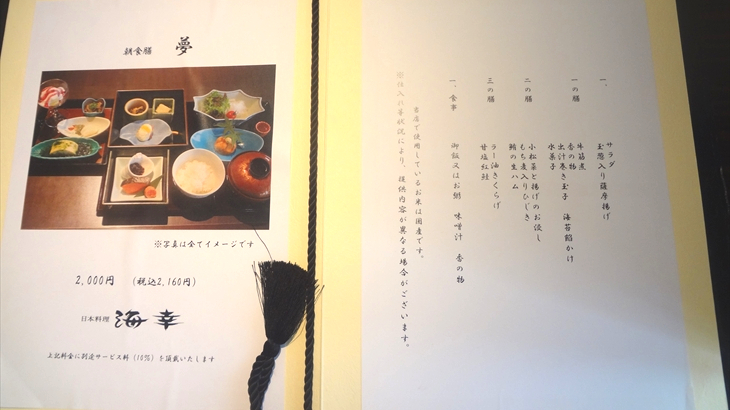 朝食膳 夢
※写真は全てイメージです
2,000円 (税込2,160円)
日本料理 海幸
上記料金に別途サービス料(10%)を頂戴いたします
一、サラダ
玉葱入り薩摩揚げ
一の膳 牛筋煮
香の物
出汁巻き玉子 海苔餡かけ
水菓子
二の膳 小松菜と揚げのお浸し
もち麦入りひじき
鮪の生ハム
三の膳 ラー油きくらげ
甘塩紅鮭
一、食事 御飯又はお粥 味噌汁 香の物
当店で使用しているお米は国産です。
※仕入れ等状況により、提供内容が異なる場合がございます。